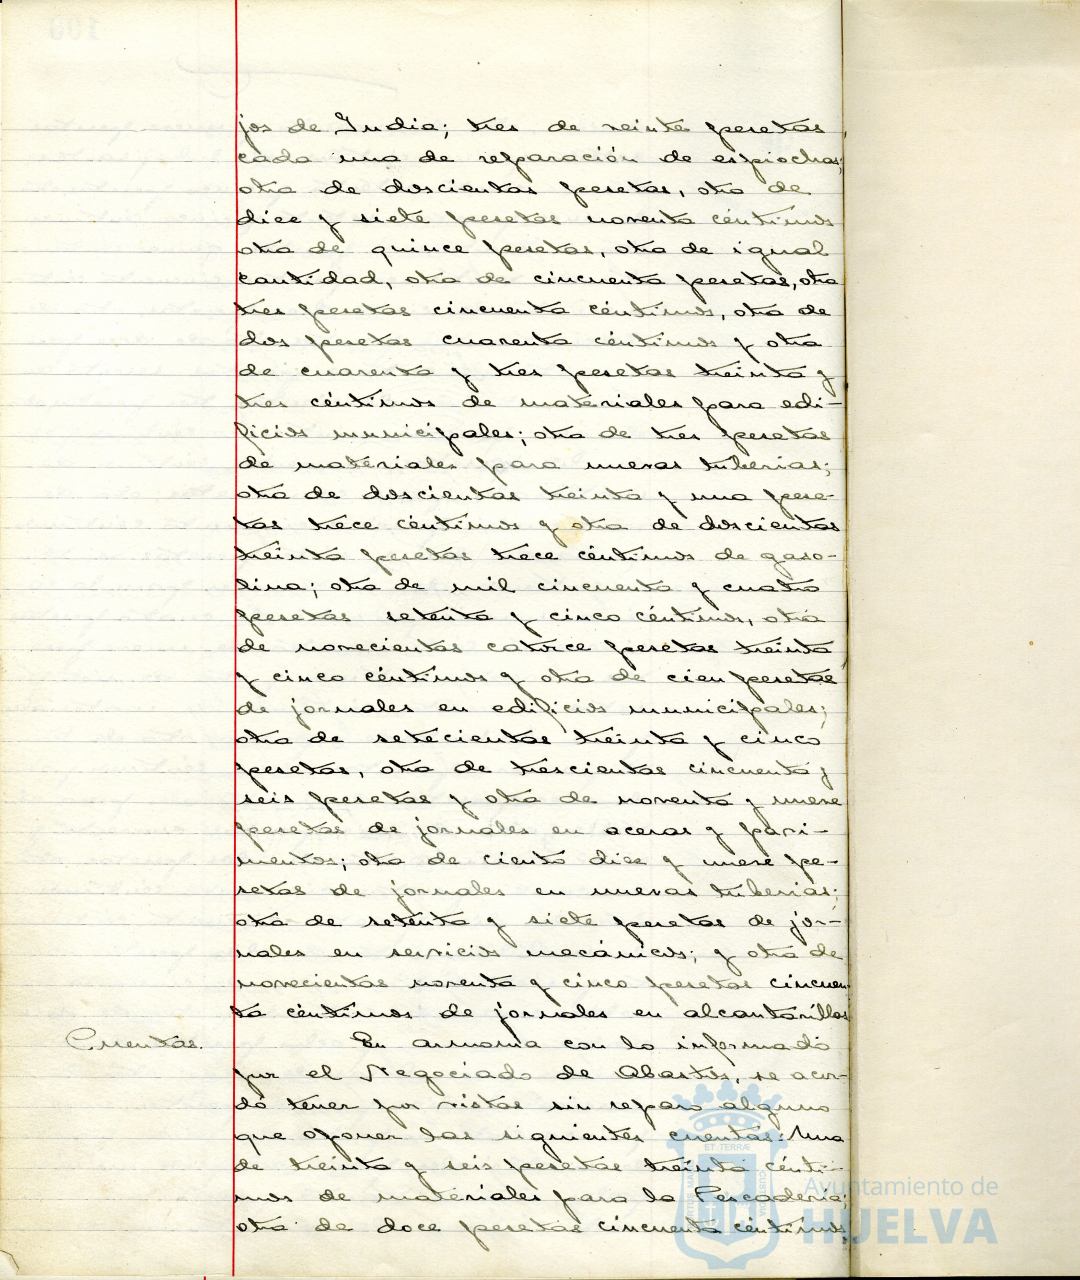 jos de India; tres de veinte pesetas
cada una de reparación de espiochas;
otra de doscientas pesetas, otra de
diez y siete pesetas noventa céntimos
otra de quince pesetas, otra de igual
cantidad, otra de cincuenta pesetas, otra
tres pesetas cincuenta céntimos, otra de
dos pesetas cuarenta céntimos y otra
de cuarenta y tres pesetas treinta y
tres céntimos de materiales para edi-
ficios municipales; otra de tres pesetas
de materiales para nuevas tuberias;
otra de doscientas treinta y una pese-
tas trece céntimos y otra de doscientas
treinta pesetas trece céntimos de gaso-
lina; otra de mil cincuenta y cuatro
pesetas setenta y cinco céntimos, otra
de novecientas catorce pesetas treinta
y cinco céntimos y otra de cien pesetas
de jornales en edificios municipales;
otra de setecientas treinta y cinco
pesetas, otra de trescientas cincuenta y
seis pesetas y otra de noventa y nueve
pesetas de jornales en aceras y pavi-
mentos; otra de ciento diez y nueve pe-
setas de jornales en nuevas tuberias;
otra de setenta y siete pesetas de jor-
nales en servicios mecánicos; y otra de
novecientas noventa y cinco pesetas cincuen-
ta céntimos de jornales en alcantarillas
Cuentas. En armonia con lo informado
por el Negociado de Abastos, se acor-
dó tener por vistas sin reparo alguno
que oponer las siguientes cuentas: Una
de treinta y seis pesetas treinta cénti-
mos de materiales para la Pescaderia;
otra de doce pesetas cincuenta céntimos,
Ayuntamiento de
HUELVA